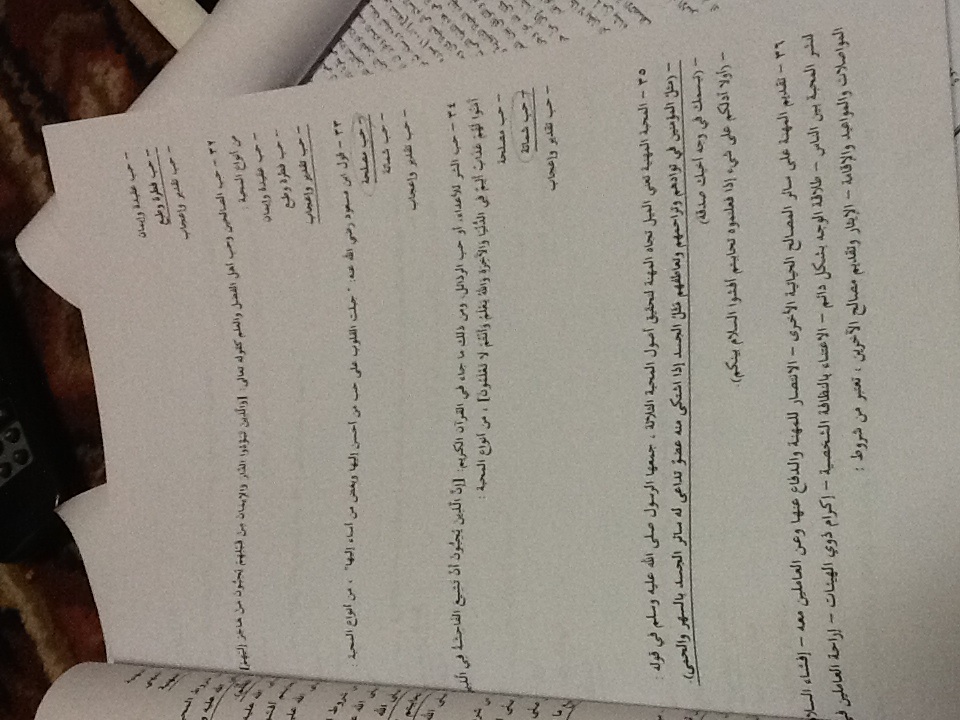 - حب تقدير وإعجاب
- حب فطرة وطبع
- حب عقيدة وإيمان
٣٢ - حب الصالحين وحب أهل الفضل والعلم كقوله تعالى: [وَالَّذِينَ تَبَوَّءُوا الدَّارَ وَالْإِيمَانَ مِن قَبْلِهِمْ يُحِبُّونَ مَنْ هَاجَرَ إِلَيْهِمْ]
من أنواع المحبة :
- حب عقيدة وإيمان
- حب فطرة وطبع
- حب تقدير وإعجاب
٣٣ - قول ابن مسعود رضي الله عنه: "جبلت القلوب على حب من أحسن إليها وبغض من أساء إليها" ، من أنواع المحبة :
- حب مصلحة
- حب شماتة
- حب تقدير وإعجاب
٣٤ - حب الشر للأعداء، أو حب الرذائل، ومن ذلك ما جاء في القرآن الكريم: [إِنَّ الَّذِينَ يُحِبُّونَ أَنْ تَشِيعَ الْفَاحِشَةُ فِي الَّذِينَ
آمَنُوا لَهُمْ عَذَابٌ أَلِيمٌ فِي الدُّنْيَا وَالْآخِرَةِ وَاللَّهُ يَعْلَمُ وَأَنْتُمْ لَا تَعْلَمُونَ] ، من أنواع المحبة :
- حب مصلحة
- حب شماتة
- حب تقدير وإعجاب
٣٥ - المحبة المهنية تعني الميل تجاه المهنة لتحقيق أصول المحبة الثلاثة ، جمعها الرسول صلى الله عليه وسلم في قوله :
- (مثل المؤمنين في توادهم وتراحمهم وتعاطفهم مثل الجسد إذا اشتكى منه عضو تداعى له سائر الجسد بالسهر والحمى)
- (تبسمك في وجه أخيك صدقة)
- (أولا أدلكم على شيء إذا فعلتموه تحاببتم أفشوا السلام بينكم).
٣٦ - تقديم المهنة على سائر المصالح الحياتية الأخرى - الانتصار للمهنة والدفاع عنها وعن العاملين معه - إفشاء السلام
لنشر المحبة بين الناس - طلاقة الوجه بشكل دائم - الاعتناء بالنظافة الشخصية - إكرام ذوي الهيئات - إراحة العاملين في
المواصلات والمواعيد والإقامة - الإيثار وتقديم مصالح الآخرين ، تعتبر من شروط :